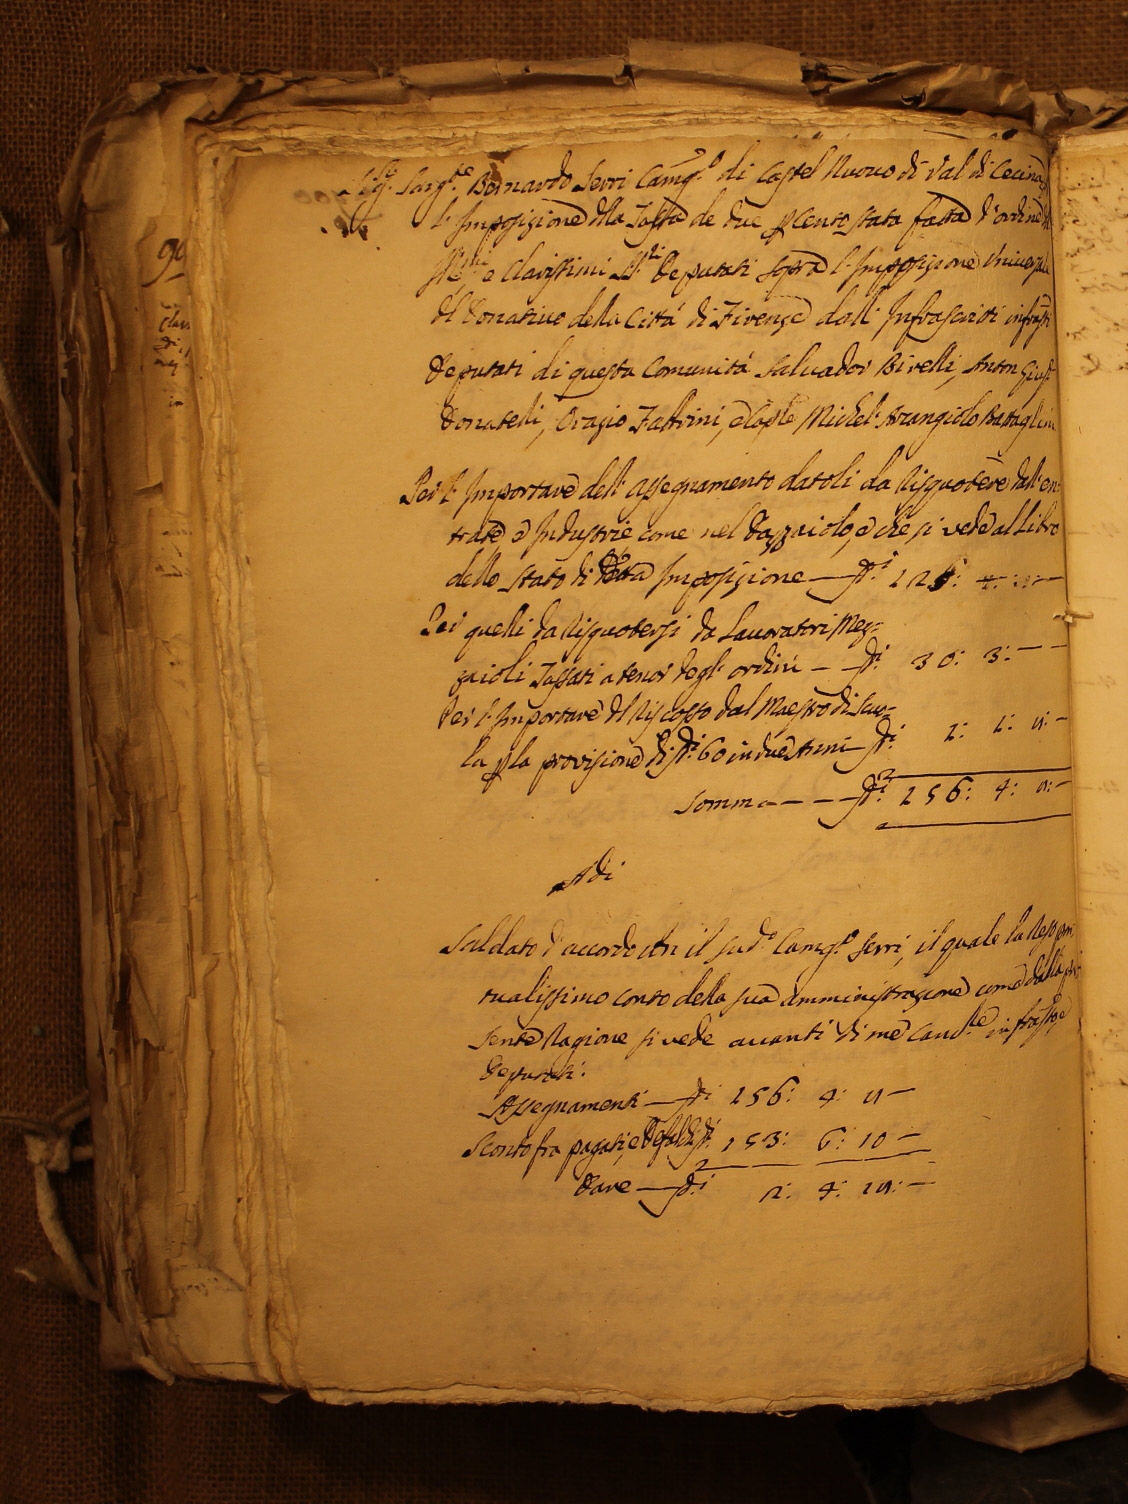 Sig.r Sarg.te Bernardo Serri Camg.o di Castel Nuovo di Val di Cecina
l'Imposizione dlla Tassa de due p Cento stata fatta d'ordine
Ill.mi e Clarissimi SS.ri Deputati sopra l'Imposizione Universale
dl Donativo della Città di Firenze dalli Infrascritti infrasti
Deputati di questa Comunità Salvador Birelli, Anton Giusp.
Donatelli, Orazio Fattorini, e Michel' Arcangiolo Battaglini
Per l'Importare dell'assegnamento datoli da Risquotere dall'en:
trate e Industrie come nel Dazzaiolo, e che si vede al Libro
dello Stato di detta Imposizione —
Per quelli da Risquotersi da Lavoratori Mez:
zaioli Tassati a tenor degl'ordini — 30: 3: —
Per l'Importare dl Riscosso dal Maestro di Scuo:
la p la provisione di 60 in due Anni —
Somma — — — 256: 4:
Adi
Saldato d'accordo con il sud.o Camg.o Serri, il quale la Reso pon
tualissimo conto della sua amministrazione come dalla pre
sente Ragione si vede avanti di me Canc.re
Deputati:
Assegnamenti — 256: 4:
Sconto fra pagati, e 153: 6: 10 —
Dare — 2: 4: